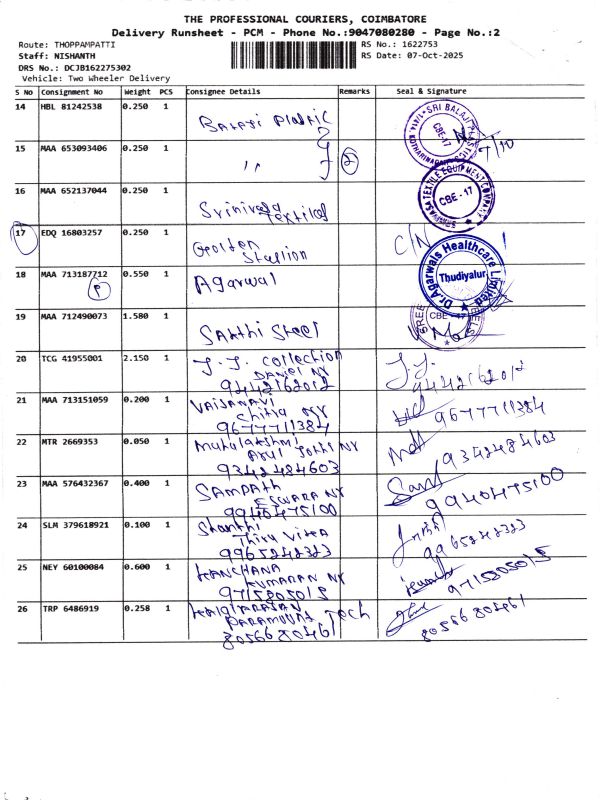 THE PROFESSIONAL COURIERS, COIMBATORE
Delivery Runsheet - PCM - Phone No.:9047080280 - Page No.:2
Route: THOPPAMPATTI RS No.: 1622753
Staff: NISHANTH RS Date: 07-Oct-2025
DRS No.: DCJB162275302
Vehicle: Two Wheeler Delivery
S No Consignment No Weight PCS Consignee Details Remarks Seal & Signature
14 HBL 81242538 0.250 1 Balaji Plastic SRI BALAJI CBE-17
15 MAA 653093406 0.250 1 ,, 2 7/10
16 MAA 652137044 0.250 1 Srinivasa Textiles SRINIVASA TEXTILE EQUIPMENT COMPANY CBE - 17
17 EDQ 16803257 0.250 1 Golden Stallion C/N
18 MAA 713187712 0.550 1 Agarwal Dr.Agarwals Healthcare Limited Thudiyalur
P
19 MAA 712490073 1.580 1 Sakthi Steel SREE CBE - 17
20 TCG 41955001 2.150 1 J.J. Collection J.J.
DANIEL NY
9442162012 9442162012
21 MAA 713151059 0.200 1 VAISANAVI
Chitra NY
9677711384 9677711384
22 MTR 2669353 0.050 1 Mahalakshmi
Arul Jothi NY
9342484603 9342484603
23 MAA 576432367 0.400 1 SAMPATH
ESWARA NY
9940475100 9940475100
24 SLM 379618921 0.100 1 Shanthi
9965242323 9965242323
25 NEY 60100084 0.600 1 KANCHANA
KUMARAN NY
9715805015 9715805015
26 TRP 6486919 0.258 1
PARAMOUNT Tech
8056680461 8056680461